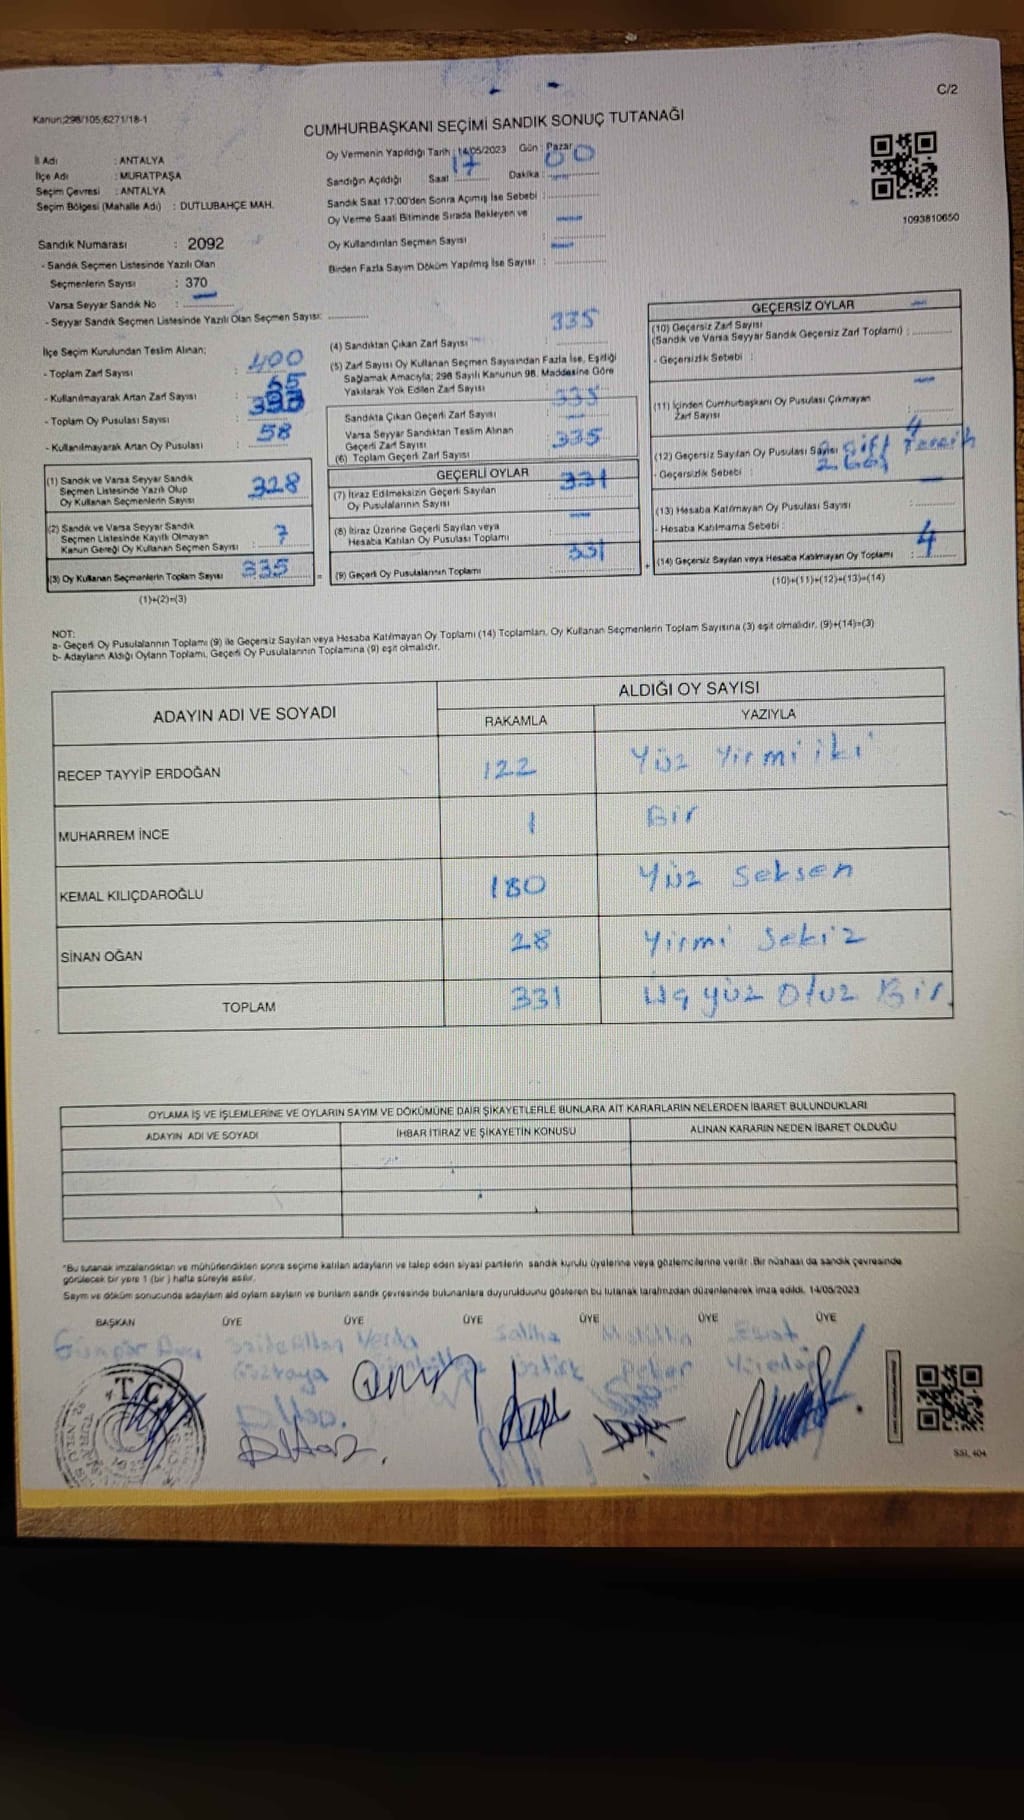 C/2
Kanun;298/105;6271/18-1
CUMHURBAŞKANI SEÇİMİ SANDIK SONUÇ TUTANAĞI
İl Adı : ANTALYA
İlçe Adı : MURATPAŞA
Seçim Çevresi : ANTALYA
Seçim Bölgesi (Mahalle Adı) : DUTLUBAHÇE MAH.
Oy Vermenin Yapıldığı Tarih : 14/05/2023 Gün : Pazar
Sandığın Açıldığı Saat 17 Dakika : 00
Sandık Saat 17:00'den Sonra Açımış İse Sebebi :
Oy Verme Saati Bitiminde Sırada Bekleyen ve
Oy Kullandırılan Seçmen Sayısı :
Birden Fazla Sayım Döküm Yapılmış İse Sayısı :
1093810650
Sandık Numarası : 2092
- Sandık Seçmen Listesinde Yazılı Olan
Seçmenlerin Sayısı : 370
Varsa Seyyar Sandık No :
- Seyyar Sandık Seçmen Listesinde Yazılı Olan Seçmen Sayısı:
İlçe Seçim Kurulundan Teslim Alınan;
- Toplam Zarf Sayısı : 400
- Kullanılmayarak Artan Zarf Sayısı : 65
- Toplam Oy Pusulası Sayısı : 393
- Kullanılmayarak Artan Oy Pusulası : 58
(1) Sandık ve Varsa Seyyar Sandık
Seçmen Listesinde Yazılı Olup
Oy Kullanan Seçmenlerin Sayısı : 328
(2) Sandık ve Varsa Seyyar Sandık
Seçmen Listesinde Kayıtlı Olmayan
Kanun Gereği Oy Kullanan Seçmen Sayısı : 7
(3) Oy Kullanan Seçmenlerin Toplam Sayısı : 335
(1)+(2)=(3)
(4) Sandıktan Çıkan Zarf Sayısı : 335
(5) Zarf Sayısı Oy Kullanan Seçmen Sayısından Fazla İse, Eşitliği
Sağlamak Amacıyla; 298 Sayılı Kanunun 98. Maddesine Göre
Yakılarak Yok Edilen Zarf Sayısı :
Sandıkta Çıkan Geçerli Zarf Sayısı : 335
Varsa Seyyar Sandıktan Teslim Alınan
Geçerli Zarf Sayısı :
(6) Toplam Geçerli Zarf Sayısı : 335
GEÇERLİ OYLAR
(7) İtiraz Edilmeksizin Geçerli Sayılan
Oy Pusulalarının Sayısı : 331
(8) İtiraz Üzerine Geçerli Sayılan veya
Hesaba Katılan Oy Pusulası Toplamı :
(9) Geçerli Oy Pusulalarının Toplamı : 331
GEÇERSİZ OYLAR
(10) Geçersiz Zarf Sayısı
(Sandık ve Varsa Seyyar Sandık Geçersiz Zarf Toplamı) :
- Geçersizlik Sebebi :
(11) İçinden Cumhurbaşkanı Oy Pusulası Çıkmayan
Zarf Sayısı :
(12) Geçersiz Sayılan Oy Pusulası Sayısı : 4
- Geçersizlik Sebebi : 2 Çift Tercih
(13) Hesaba Katılmayan Oy Pusulası Sayısı :
- Hesaba Katılmama Sebebi :
(14) Geçersiz Sayılan veya Hesaba Katılmayan Oy Toplamı : 4
(10)+(11)+(12)+(13)=(14)
NOT:
a- Geçerli Oy Pusulalarının Toplamı (9) ile Geçersiz Sayılan veya Hesaba Katılmayan Oy Toplamı (14) Toplamları, Oy Kullanan Seçmenlerin Toplam Sayısına (3) eşit olmalıdır. (9)+(14)=(3)
b- Adayların Aldığı Oyların Toplamı, Geçerli Oy Pusulalarının Toplamına (9) eşit olmalıdır.
ADAYIN ADI VE SOYADI ALDIĞI OY SAYISI
RAKAMLA YAZIYLA
RECEP TAYYİP ERDOĞAN 122 Yüz Yirmi iki
MUHARREM İNCE 1 Bir
KEMAL KILIÇDAROĞLU 180 Yüz Seksen
SİNAN OĞAN 28 Yirmi Sekiz
TOPLAM 331 Üç yüz Otuz Bir
OYLAMA İŞ VE İŞLEMLERİNE VE OYLARIN SAYIM VE DÖKÜMÜNE DAİR ŞİKAYETLERLE BUNLARA AİT KARARLARIN NELERDEN İBARET BULUNDUKLARI
ADAYIN ADI VE SOYADI İHBAR İTİRAZ VE ŞİKAYETİN KONUSU ALINAN KARARIN NEDEN İBARET OLDUĞU
"Bu tutanak imzalandıktan ve mühürlendikten sonra seçime katılan adayların ve talep eden siyasi partilerin sandık kurulu üyelerine veya gözlemcilerine verilir. Bir nüshası da sandık çevresinde
görülecek bir yere 1 (bir) hafta süreyle asılır.
Sayım ve döküm sonucunda adayların aldı oyların sayıların ve bunların sandık çevresinde bulunanlara duyurulduunu gösteren bu tutanak tarafımızdan düzenlenerek imza edildi. 14/05/2023
BAŞKAN ÜYE ÜYE ÜYE ÜYE ÜYE ÜYE
Saliha
T.C.
SSL 404